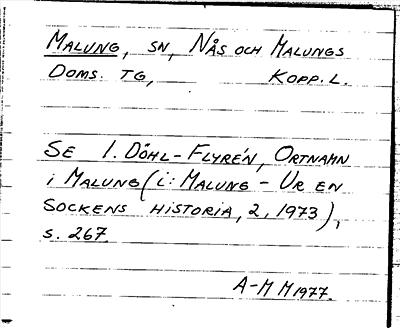 MALUNG, SN, NÅS OCH MALUNGS
DOMS. TG, KOPP. L.
SE I. DÖHL-FLYRÉN, ORTNAMN
i MALUNG (i: MALUNG - UR EN
SOCKENS HISTORIA, 2, 1973),
s. 267.
A-M M 1977.